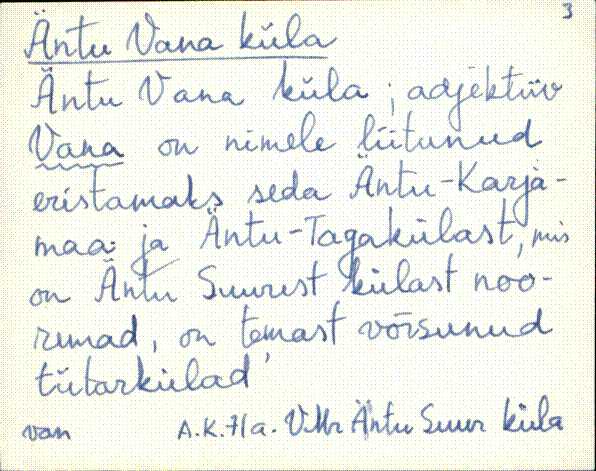 3
Äntu Vana küla
Äntu Vana küla ; adjektiiv
Vana on nimele liitunud
eristamaks seda Äntu-Karja-
maa- ja Äntu-Tagakülast, mis
on Äntu Suurest külast noo-
remad, on temast võrsunud
tütarkülad
van A.K. Äntu Suur küla